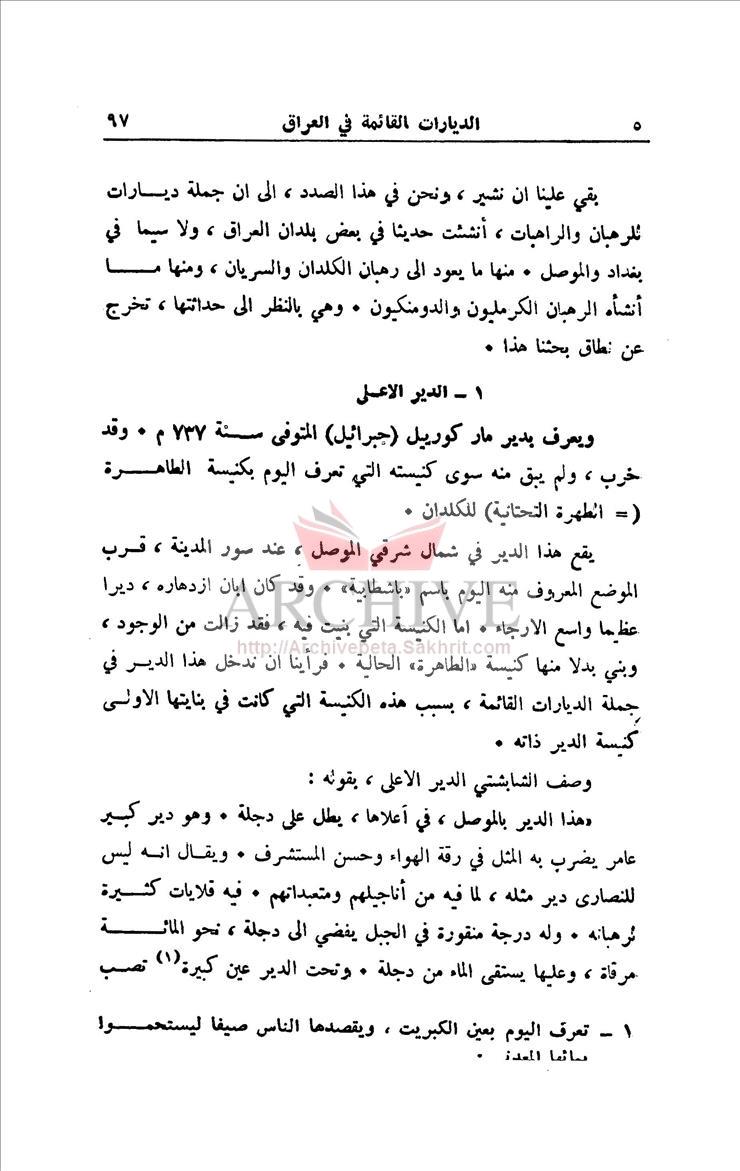 ٥ الديارات القائمة في العراق ٩٧
بقي علينا ان نشير ، ونحن في هذا الصدد ، الى ان جملة ديـــارات
للرهبان والراهبات ، أنشئت حديثا في بعض بلدان العراق ، ولا سيما في
بغداد والموصل ٠ منها ما يعود الى رهبان الكلدان والسريان ، ومنها مـــا
أنشأه الرهبان الكرمليون والدومنكيون ٠ وهي بالنظر الى حداثتها ، تخرج
عن نطاق بحثنا هذا ٠
١ ــ الدير الاعلى
ويعرف بدير مار كورييل (جبرائيل) المتوفى سـنة ٧٣٧ م ٠ وقد
خرب ، ولم يبق منه سوى كنيسته التي تعرف اليوم بكنيسة الطاهـــرة
(= الطهرة التحتانية) للكلدان ٠
يقع هذا الدير في شمال شرقي الموصل ، عند سور المدينة ، قـرب
الموضع المعروف منه اليوم باسم «باشطابية» ٠ وقد كان ابان ازدهاره ، ديرا
عظيما واسع الارجاء ٠ اما الكنيسة التي بنيت فيه ، فقد زالت من الوجود ،
ARCHIVE
http://Archivebeta.Sakhrit.com
وبني بدلا منها كنيسة «الطاهرة» الحالية ٠ فرأينا ان ندخل هذا الديـر في
جملة الديارات القائمة ، بسبب هذه الكنيسة التي كانت في بنايتها الاولـى
كنيسة الدير ذاته ٠
وصف الشابشتي الدير الاعلى ، بقوله :
«هذا الدير بالموصل ، في أعلاها ، يطل على دجلة ٠ وهو دير كبـير
عامر يضرب به المثل في رقة الهواء وحسن المستشرف ٠ ويقال انـه ليس
للنصارى دير مثله ، لما فيه من أناجيلهم ومتعبداتهم ٠ فيه قلايات كثـيرة
لرهبانه ٠ وله درجة منقورة في الجبل يفضي الى دجلة ، نحو المائـــة
مرقاة ، وعليها يستقى الماء من دجلة ٠ وتحت الدير عين كبيرة(١) تصب
١ ــ تعرف اليوم بعين الكبريت ، ويقصدها الناس صيفا ليستحمـــوا